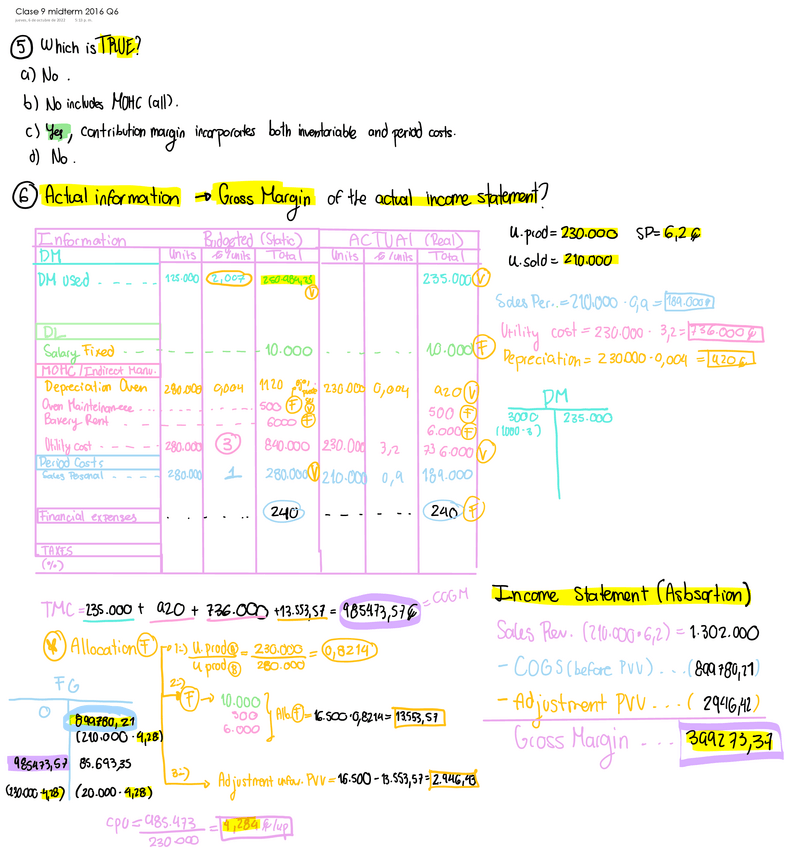 Clase 9 midterm 2016 Q6
⑤ Which is TRUE?
a) No.
b) No includes MOHC (all).
c) Yes, contribution margin incorporates both inventoriable and period costs.
d) No.
⑥ Actual information → Gross Margin of the actual income statement?
Information Budgeted (Static) ACTUAL (Real)
DM Units €/units Total Units €/units Total
DM used - - - - 125.000 2,007 235.000 V
V
DL
Salary Fixed 10.000 10.000 F
MOHC/Indirect Manu.
Depreciation Oven 280.000 0,004 1120 230.000 0,004 920 V
Oven Maintenance 500 F 500 F
Bakery Rent 6000 F 6.000 F
Utility cost 280.000 3 840.000 230.000 3,2 736.000 V
Period Costs
Sales Personal 280.000 1 280.000 V 210.000 0,9 189.000
Financial expenses 240 240 F
TAXES
(%)
u.prod = 230.000 SP = 6,2€
u.sold = 210.000
Sales Per. = 210.000 · 0,9 = 189.000€
Utility cost = 230.000 · 3,2 = 736.000€
Depreciation = 230.000 · 0,004 = 920€
DM
3000 235.000
(1000·3)
TMC = 235.000 + 920 + 736.000 + 13.553,57 = 985473,57€ = COGM
Allocation F
1:) u.prod = 230.000 = 0,8214
u.prod 280.000
2:)
F → 10.000
500
6.000
F = 16.500 · 0,8214 = 13553,57
3:) Adjustment unfav. PVV = 16.500 - 13.553,57 = 2.946,43
FG
0 899780,21
(210.000 · 4,28)
985473,57 85.693,35
(230.000 · 4,28) (20.000 · 4,28)
CPU = 985.473 = 4,284 €/up
230.000
Income Statement (Asbsortion)
Sales Rev. (210.000 · 6,2) = 1.302.000
- COGS (before PVV) ... (899780,21)
- Adjustment PVV ... (2946,42)
Gross Margin ... 399273,37